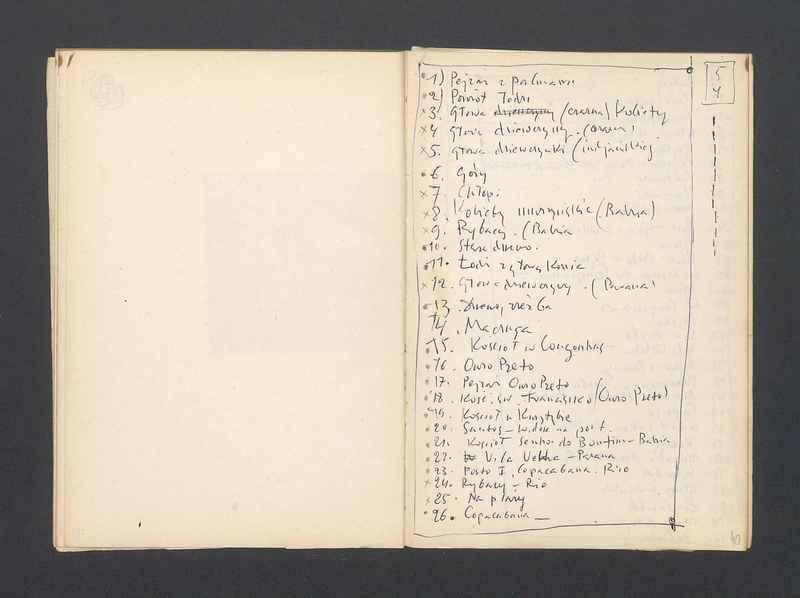 1) Pejzaż z palmami
2) Powrót łodzi
3. Głowa dziewczyny (czarna) kobiety
4 głowa dziewczyny. (czarna)
5. głowa dziewczynki (indjańskiej
6. Góry
7. Chłopi
8. Kobiety murzyńskie (Bahia)
9. Rybacy. (Bahia
10. Stare drzewo.
11. Łodzie z głową konia
12. Głowa dziewczyny. (Parana)
13. Drzewo, rzeźba
14. Macumba
15. Kościół w Congonhas
16. Ouro Preto
17. Pejzaż Ouro Preto
18. Kość. św. Francisco (Ouro Preto)
19. Kościół w Kurytybie
20. Santos – widok na port.
21. Kościół Senhor do Bonfim – Bahia
22. Vila Velha – Parana
23. Posto I, Copacabana. Rio
24. Rybacy – Rio
25. Na plaży
26. Copacabana
5
4